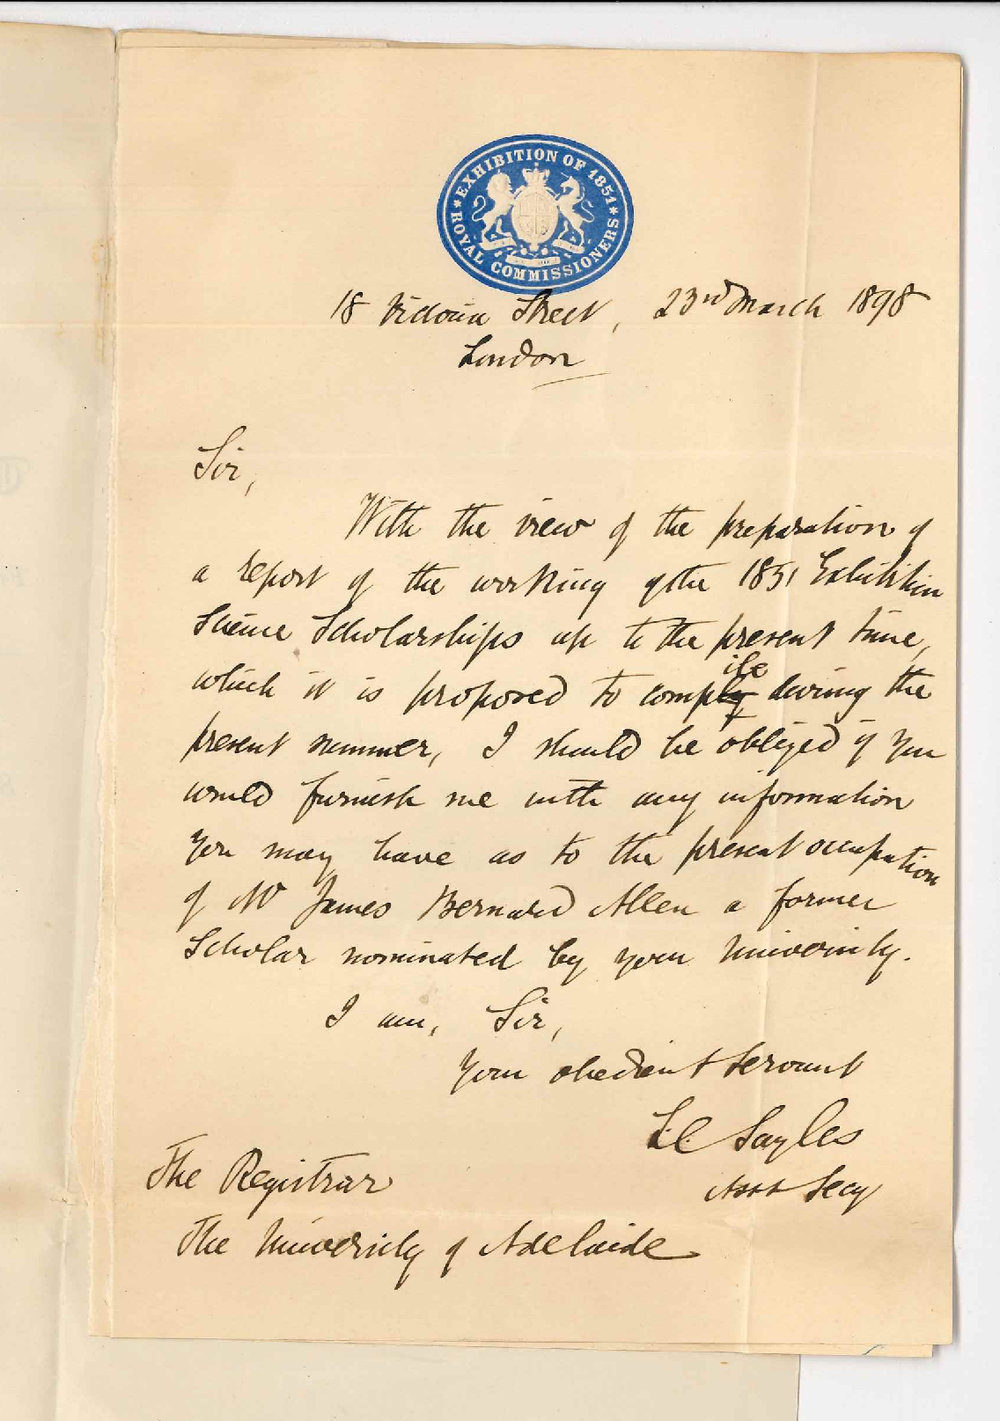 EXHIBITION OF 1851
ROYAL COMMISSIONERS
18 Victoria Street, 23rd March 1898
London
Sir,
With the view of the preparation of
a report of the working of the 1851 Exhibition
Science Scholarships up to the present time,
which it is proposed to compile during the
present summer, I should be obliged if you
would furnish me with any information
you may have as to the present occupation
of Mr James Bernard Allen a former
Scholar nominated by your University.
I am, Sir,
Your obedient Servant
Sayles
Asst Secy
The Registrar
The University of Adelaide